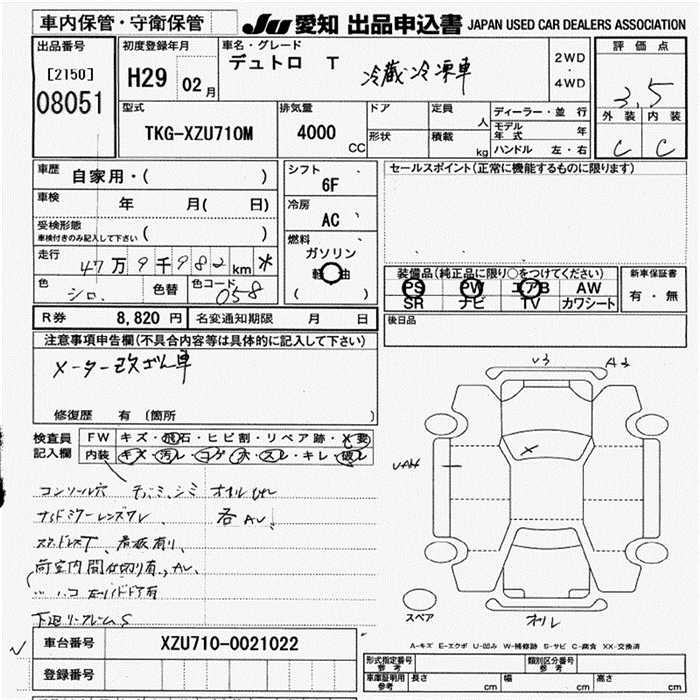 車内保管・守衛保管
JU 愛知 出品申込書 JAPAN USED CAR DEALERS ASSOCIATION
出品番号
[2150]
08051
初度登録年月
H29 02月
車名・グレード
デュトロ T 冷蔵冷凍車
2WD
・
4WD
評価点
3.5
外装 内装
C C
型式
TKG-XZU710M
排気量
4000
CC
ドア
形状
定員
人
積載
kg
ディーラー・並行
モデル年式 年
ハンドル 左・右
車歴
自家用・( )
車検
年 月( 日)
受検形態
車検付きのみ記入して下さい ( )
走行
47万9千982km *
色
シロ
色替
色コード
058
シフト
6F
冷房
AC
燃料
ガソリン
軽油
( )
セールスポイント(正常に機能するものに限ります)
装備品(純正品に限り○をつけてください)
PS PW エアB AW
SR ナビ TV カワシート
新車保証書
有・無
後日品
R券 8,820円 名変通知期限 月 日
注意事項申告欄(不具合内容等は具体的に記入して下さい)
メーター改ざん車
修復歴 有 (箇所 )
検査員
記入欄
FW キズ・飛石・ヒビ割・リペア跡・X要
内装 キズ・汚レ・コゲ・穴・スレ・キレ・破レ
コンソール穴
各AU
看板有り
下廻リーフレームS
U3 A3
X
スペア
オイル
A-キズ E-エクボ U-凹み W-補修跡 S-サビ C-腐食 XX-交換済
車台番号 XZU710-0021022
登録番号
型式指定番号
参考
類別区分番号
参考
車庫証明用
参考
長さ cm 幅 cm 高さ cm